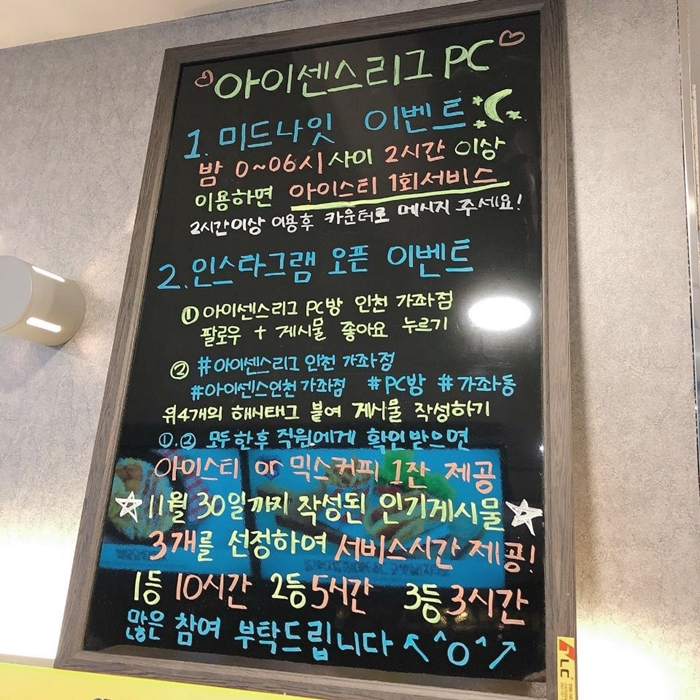 아이센스리그 PC
1. 미드나잇 이벤트
밤 0~06시 사이 2시간 이상
이용하면 아이스티 1회서비스
2시간이상 이용후 카운터로 메시지 주세요!
2. 인스타그램 오픈 이벤트
① 아이센스리그 PC방 인천 가좌점
팔로우 + 게시물 좋아요 누르기
② #아이센스리그 인천 가좌점
#아이센스인천가좌점 #PC방 #가좌동
위4개의 해시태그 붙여 게시물 작성하기
①.② 모두한후 직원에게 확인받으면
아이스티 or 믹스커피 1잔 제공
☆11월 30일까지 작성된 인기게시물☆
3개를 선정하여 서비스시간 제공!
1등 10시간 2등 5시간 3등 3시간
많은 참여 부탁드립니다 ↖^o^↗